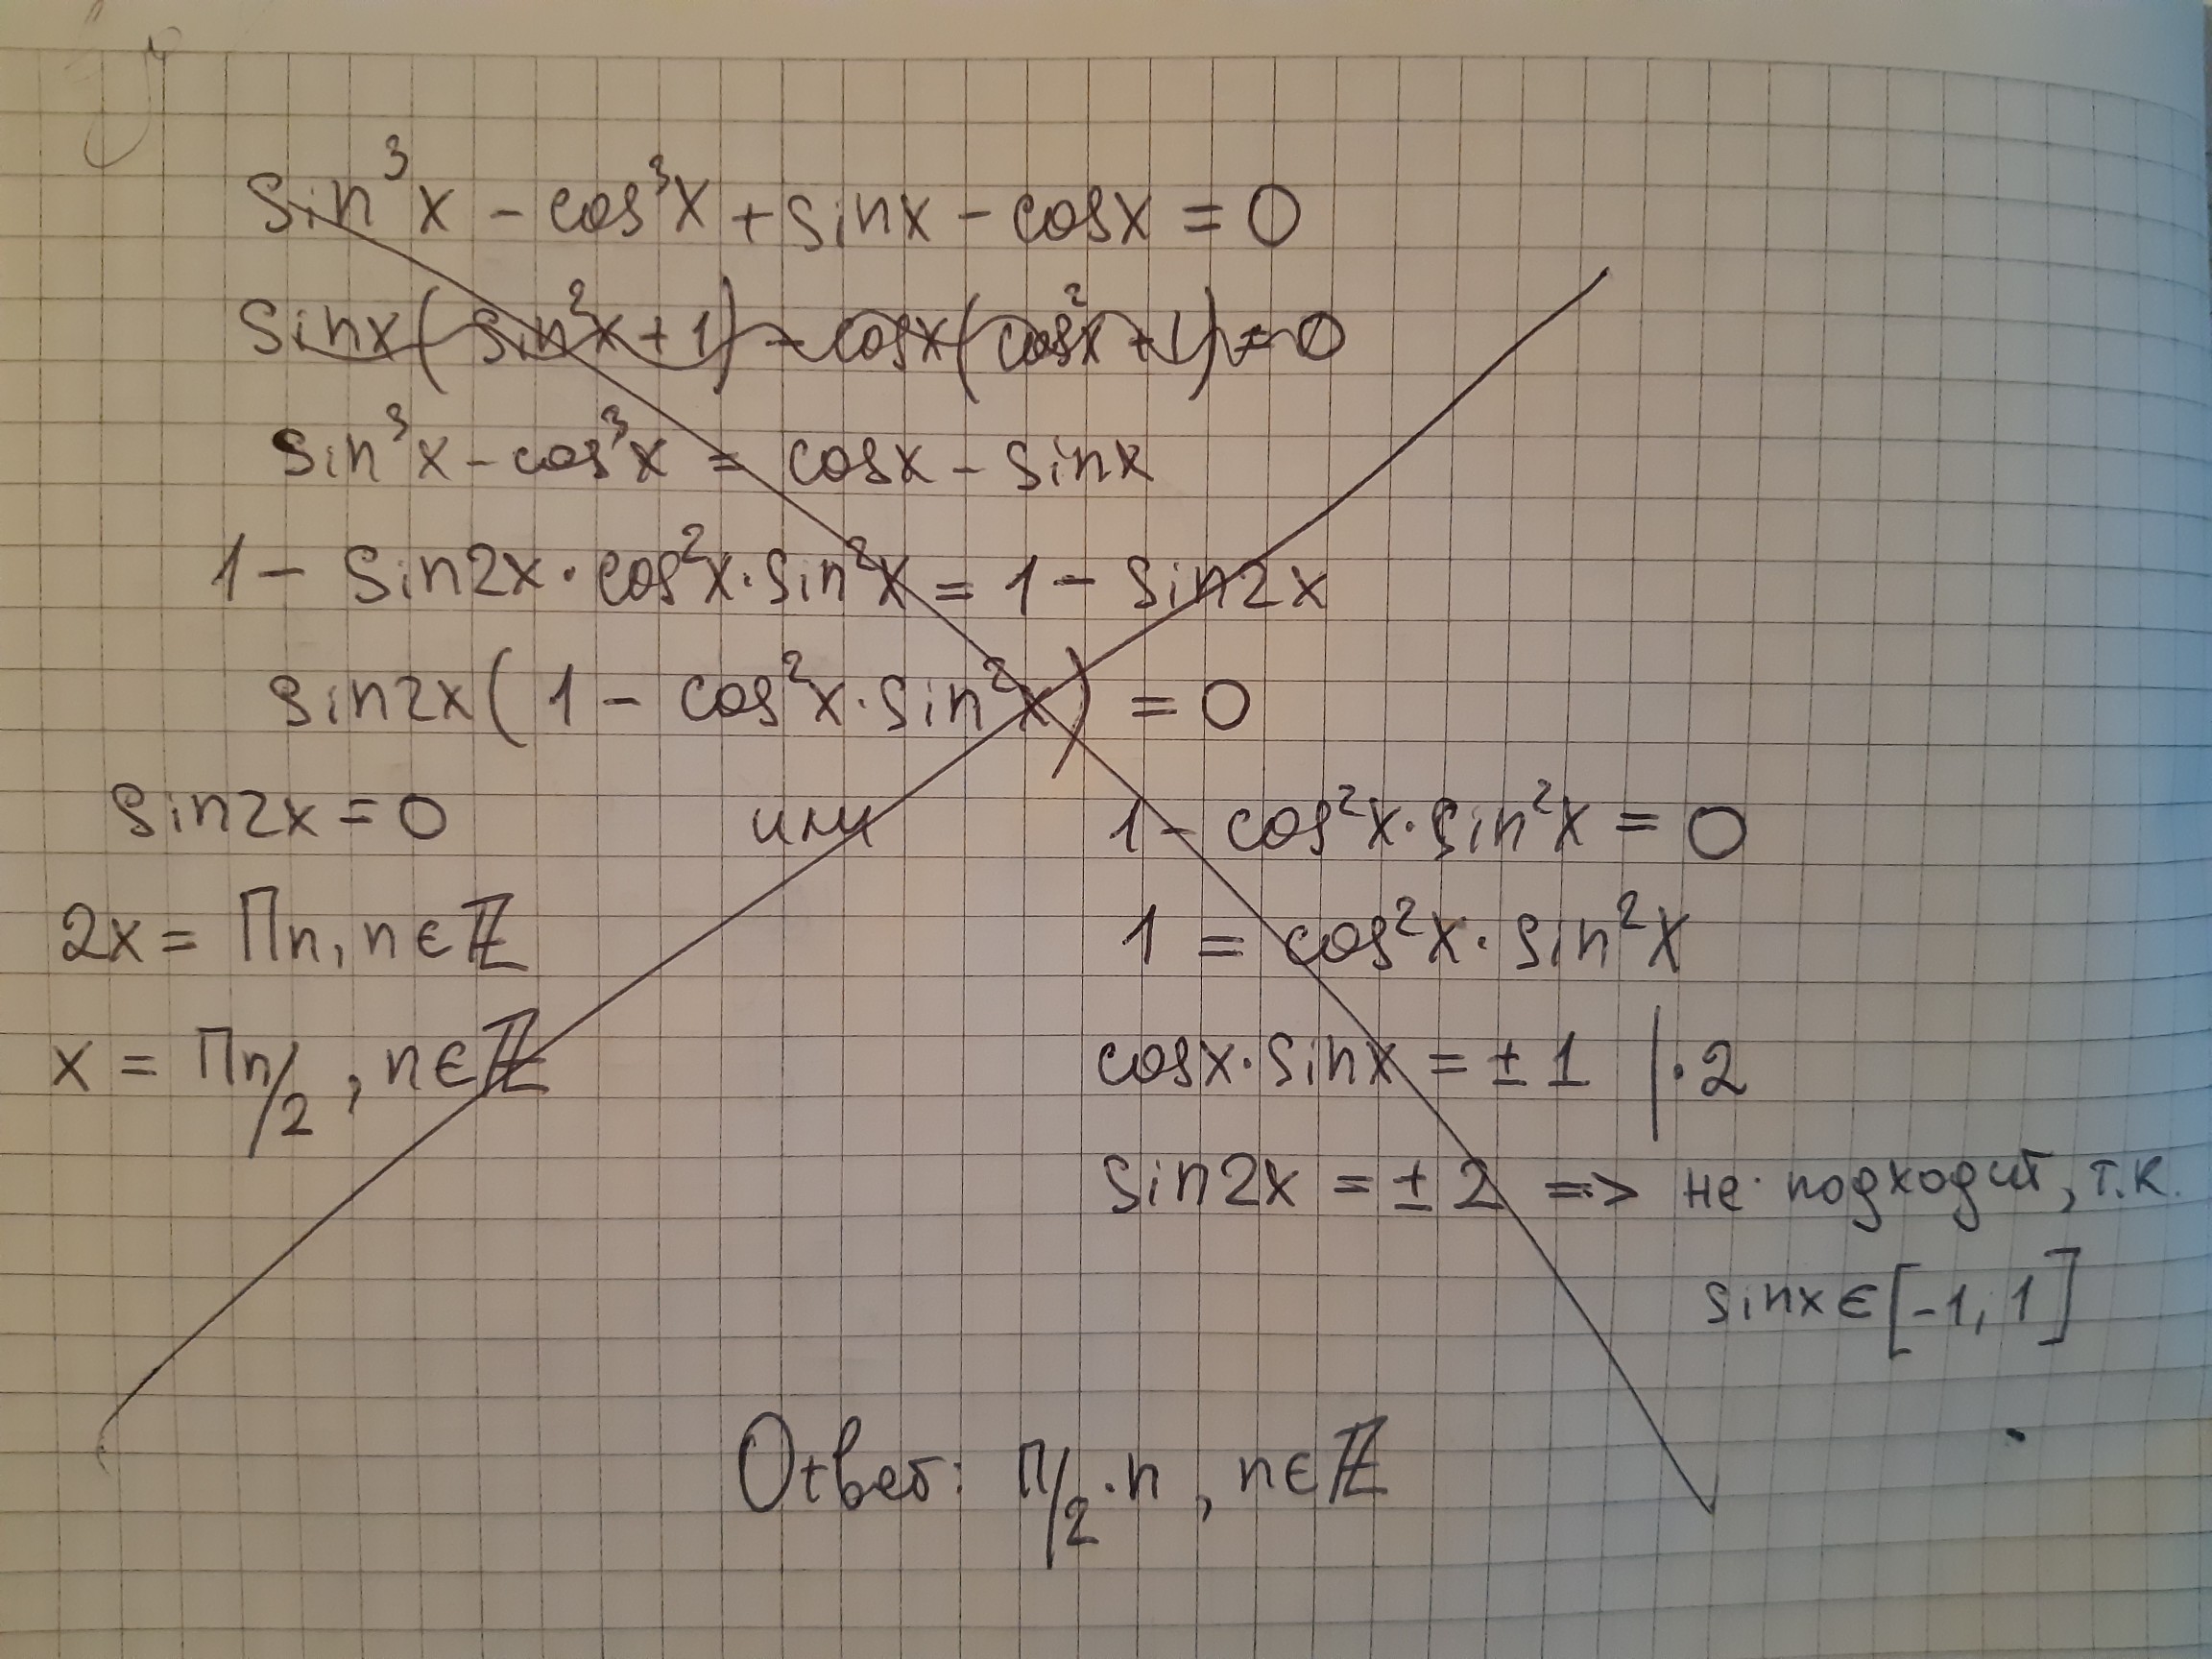 sin³x - cos³x + sinx - cosx = 0
sinx(sin²x + 1) - cosx(cos²x + 1) = 0
sin³x - cos³x = cosx - sinx
1 - sin2x · cos²x · sin²x = 1 - sin2x
sin2x(1 - cos²x · sin²x) = 0
sin2x = 0 или 1 - cos²x · sin²x = 0
2x = Πn, n ∈ ℤ 1 = cos²x · sin²x
x = Πn/2, n ∈ ℤ cosx · sinx = ± 1 | · 2
sin2x = ± 2 => не подходит, т.к.
sinx ∈ [-1, 1]
Ответ: Π/2 · n, n ∈ ℤ